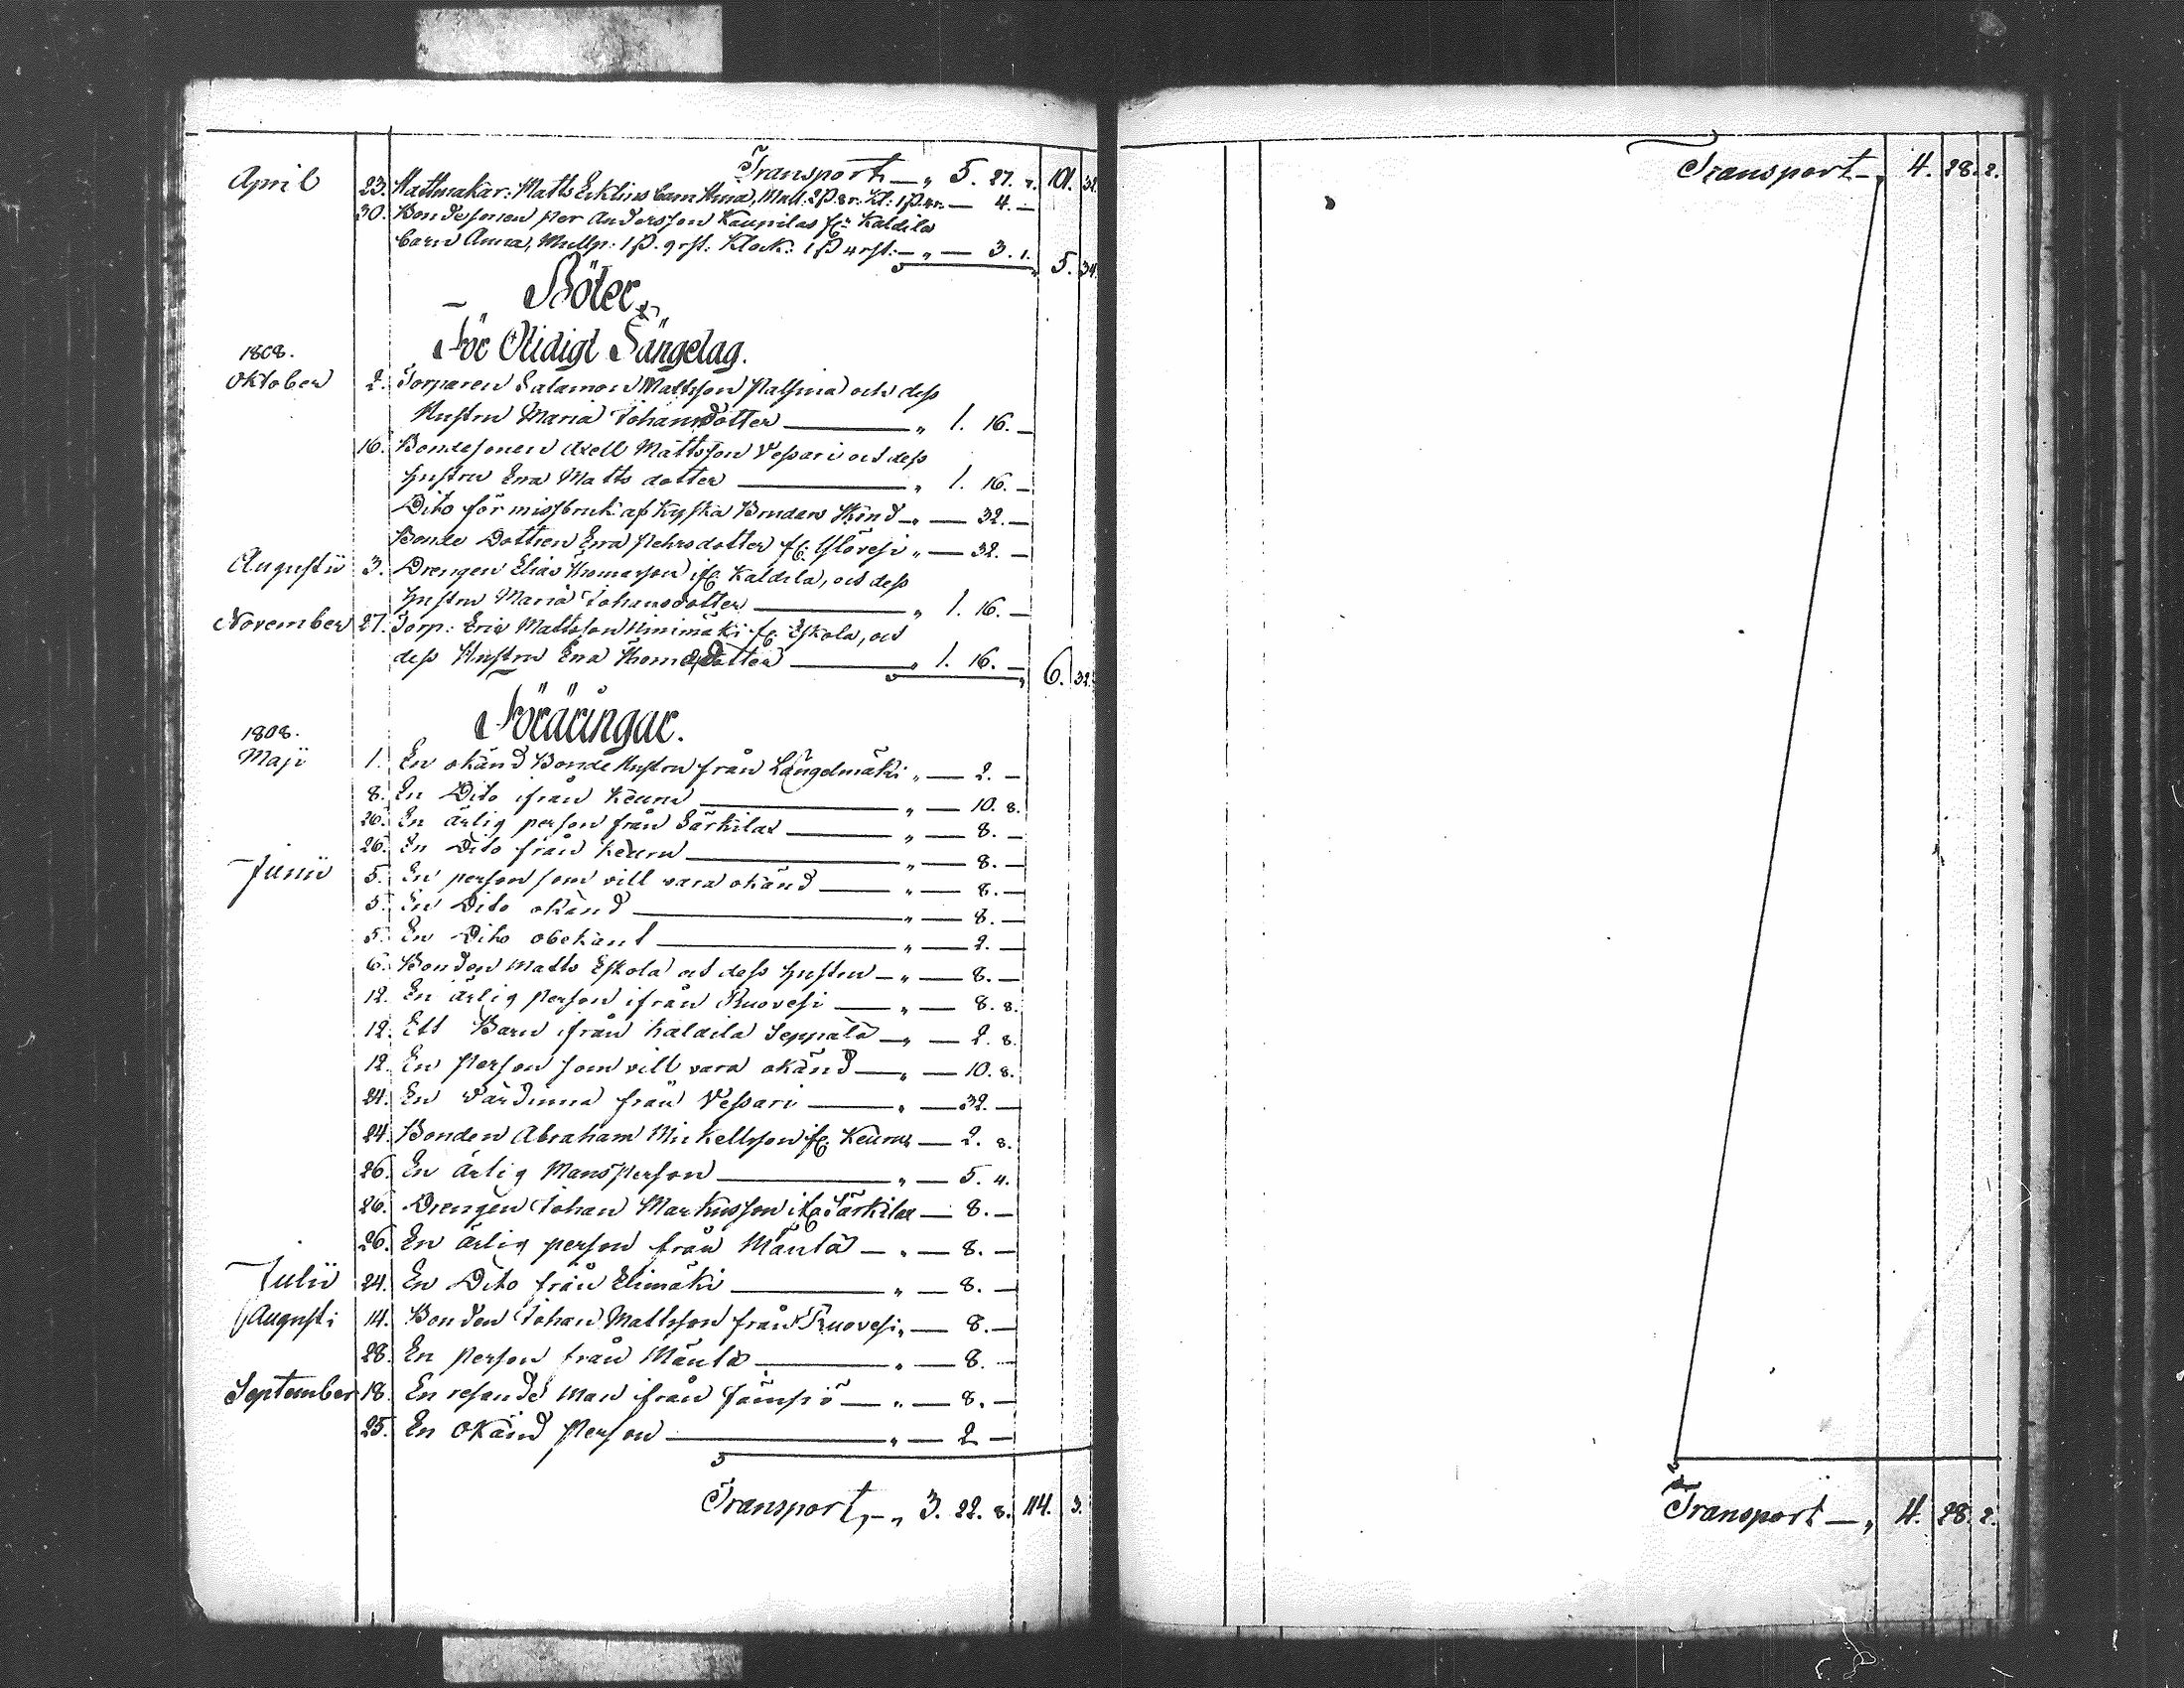 Transport — „ 5. 27. 7. 101. 32.
April 23. Hattmakar: Matts Ecklins barn Stina, Mull: 2ß. 8 r. Kl: 1ß 4 r. — 4. —
30. Bondesonen Per Andersson Kaupilas fr: Kaldila
barn Anna, Mullp: 1 ß. 9 rst: Klock: 1 ß 4 rst: — „ — 3. 1. 5. 34.
Böter
För Otidigt Sängelag.
1808.
Oktober 2. Torparen Salamon Mattsson Palsina och dess
Hustru Maria Johansdotter — „ 1. 16. —
16. Bondesonen Axell Mattsson Vessari och dess
hustru Eva Matts dotter — „ 1. 16. —
Dito för missbruk af Kyska Brudars — „ — 32. —
Bonde Dottren Eva Pehrsdotter fr: Ylövesi „ — 32. —
Augusti 3. Drengen Elias Thomasson ifr: Kaldila, och dess
hustru Maria Johansdotter — „ 1. 16. —
November 27. Torp: Eric Mattsson fr: Eskola, och
dess Hustru Eva Thomasdotter — „ 1. 16. — 6. 32.
Föräringar.
1808.
Maji 1. En okänd Bonde Hustru från Längelmäki „ — 2. —
8. En Dito ifrån Keuru — „ — 10. 8.
20. En ärlig person från Särkilax — „ — 8. —
26. En Dito från Keuru — „ — 8. —
Junii 5. En person som vill vara okänd — „ — 8. —
5. En Dito okänd — „ — 8. —
5. En Dito obekant — „ — 2. —
6. Bonden Matts Eskola och dess hustru — „ — 8. —
12. En ärlig person ifrån Ruovesi — „ — 8. 8.
12. Ett Barn ifrån Kaldila Seppälä — „ — 2. 8.
12. En Person som vill vara okänd — „ — 10. 8.
24. En Värdinna från Vessari — „ — 32. —
24. Bonden Abraham Mickellsson fr: Keuru — 2. 8.
26. En ärlig Mans Person — „ — 5. 4.
26. Drengen Johan Markusson ifr: Särkilax — 8. —
26. En ärlig person från Mäntä — „ — 8. —
Julii 24. En Dito från Elimäki — „ — 8. —
Augusti 14. Bonden Johan Mattsson från Ruovesi „ — 8. —
28. En Person från Mäntä — „ — 8. —
September 18. En resande Man ifrån Jämsiö — „ — 8. —
25. En Okänd Person — „ — 2. —
Transport, — „ 3. 22. 8. 114. 3.
Transport — „ 4. 28. 2.
Transport — „ 4. 28. 2.